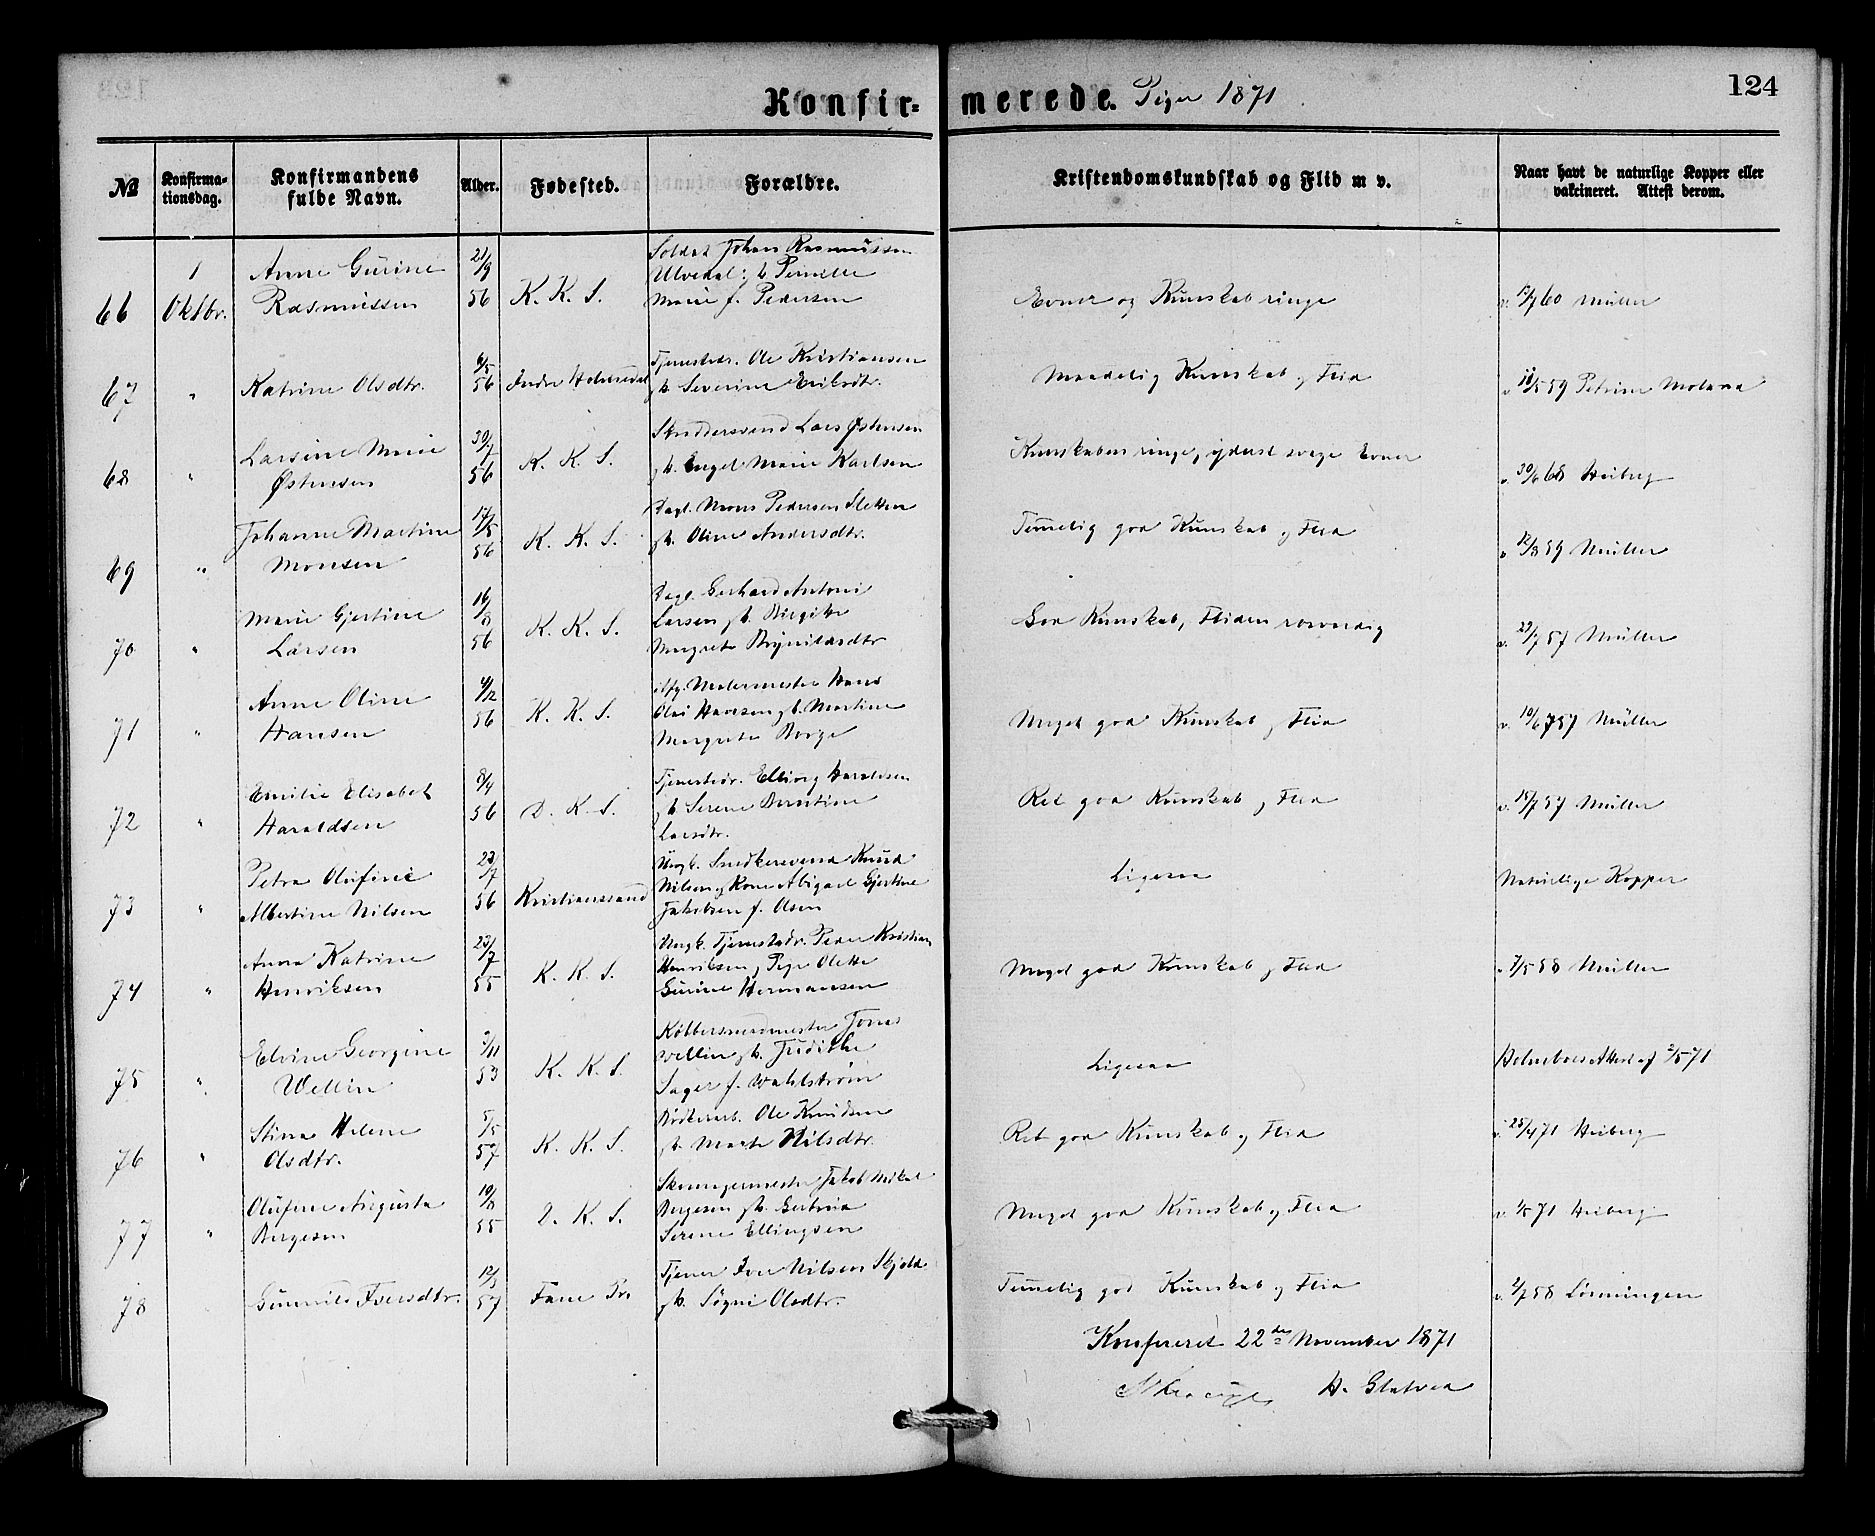 124
Konfirmerede. Piger 1871
№ Konfirmationsdag. Konfirmandens fulde Navn. Alder. Fødested. Forældre. Kristendomskundskab og Flid m v. Naar havt de naturlige Kopper eller vakcineret. Attest derom.
66
1 Oktbr.
Anne Gurine
Rasmussen
21/9 56
K. K. S.
Soldat Johan Rasmussen
Ulvedal; h. Pernille
Marie f. Pedersen
Evner og Kunskab ringe
v. 12/7 60 Müller
67
"
Katrine Olsdtr.
6/5 56
Indre Holmedal
Tjenestedr. Ole Kristiansen
h. Severine Eriksdtr.
Maadelig Kunskab og Flid
v. 18/5 59 Petrine Moland
68
"
Larsine Marie
Østensen
30/7 56
K. K. S.
Skreddersvend Lars Østensen
h. Engel Marie Karlsen
Kunskaben ringe, yderst svage Evner
v. 30/6 68 Heiberg
69
"
Johanne Martine
Monsen
17/5 56
K. K. S.
Dagl. Mons Pedersen Sletten
h. Oline Andersdtr.
Temmelig god Kunskab og Flid
v. 12/8 59 Müller
70
"
Marie Gjertine
Larsen
16/8 56
K. K. S.
Dagl. Gerhard Antoni
Larsen h. Birgitte
Margrete Brynildsdtr
God Kunskab, Fliden rosverdig
v. 22/7 57 Müller
71
"
Anne Oline
Hansen
4/12 56
K. K. S.
Malermester Hans
Olai Hansen h. Martine
Margrete Borge
Meget god Kunskab og Flid
v. 10/6 757 Müller
72
"
Emilie Elisabet
Haraldsen
8/4 56
D. K. S.
Tjenestedr. Elling Haraldsen
h. Serene Berntine
Larsdtr.
Ret god Kunskab og Flid
v. 15/7 57 Müller
73
"
Petra Olufine
Albertine Nilsen
23/7 56
Kristianssand
Ungk. Snedkersvend Knud
Nilsen og Kone Abigael Gjertine
Jakobsen f. Olsen
Ligesaa
Naturlige Kopper
74
"
Anna Katrine
Henriksen
23/7 55
K. K. S.
Ungk. Tjenestedr. Peder Kristian
Henriksen, Pige Olette
Gurine Hermansen
Meget god Kunskab og Flid
v. 7/5 58 Müller
75
"
Elvine Georgine
Wellin
3/11 53
K. K. S.
Kobbersmedmester Jonas
Wellin h. Judithe
Sager f. Wahlstrøm
Ligesaa
Holmboes Attest af 2/5 71
76
"
Stina Helene
Olsdtr.
5/5 57
K. K. S.
Bødkerarb. Ole Knudsen
h. Marte Nilsdtr.
Ret god Kunskab og Flid
v. 25/4 71 Heiberg
77
"
Olufine Augusta
Bergesen
10/8 55
D. K. S.
Skomagermester Jakob Mikal
Bergesen h. Gertruid
Serene Ellingsen
Meget god Kunskab og Flid
v. 1/5 71 Heiberg
78
Gunnild Iversdtr.
12/3 57
Fane Pr.
Tjener Iver Nilsen Skjold
h. Søgni Olsdtr.
Temmelig god Kunskab og Flid
v. 2/7 58 Lønningen
Konfereret 22de November 1871
H. Gletved